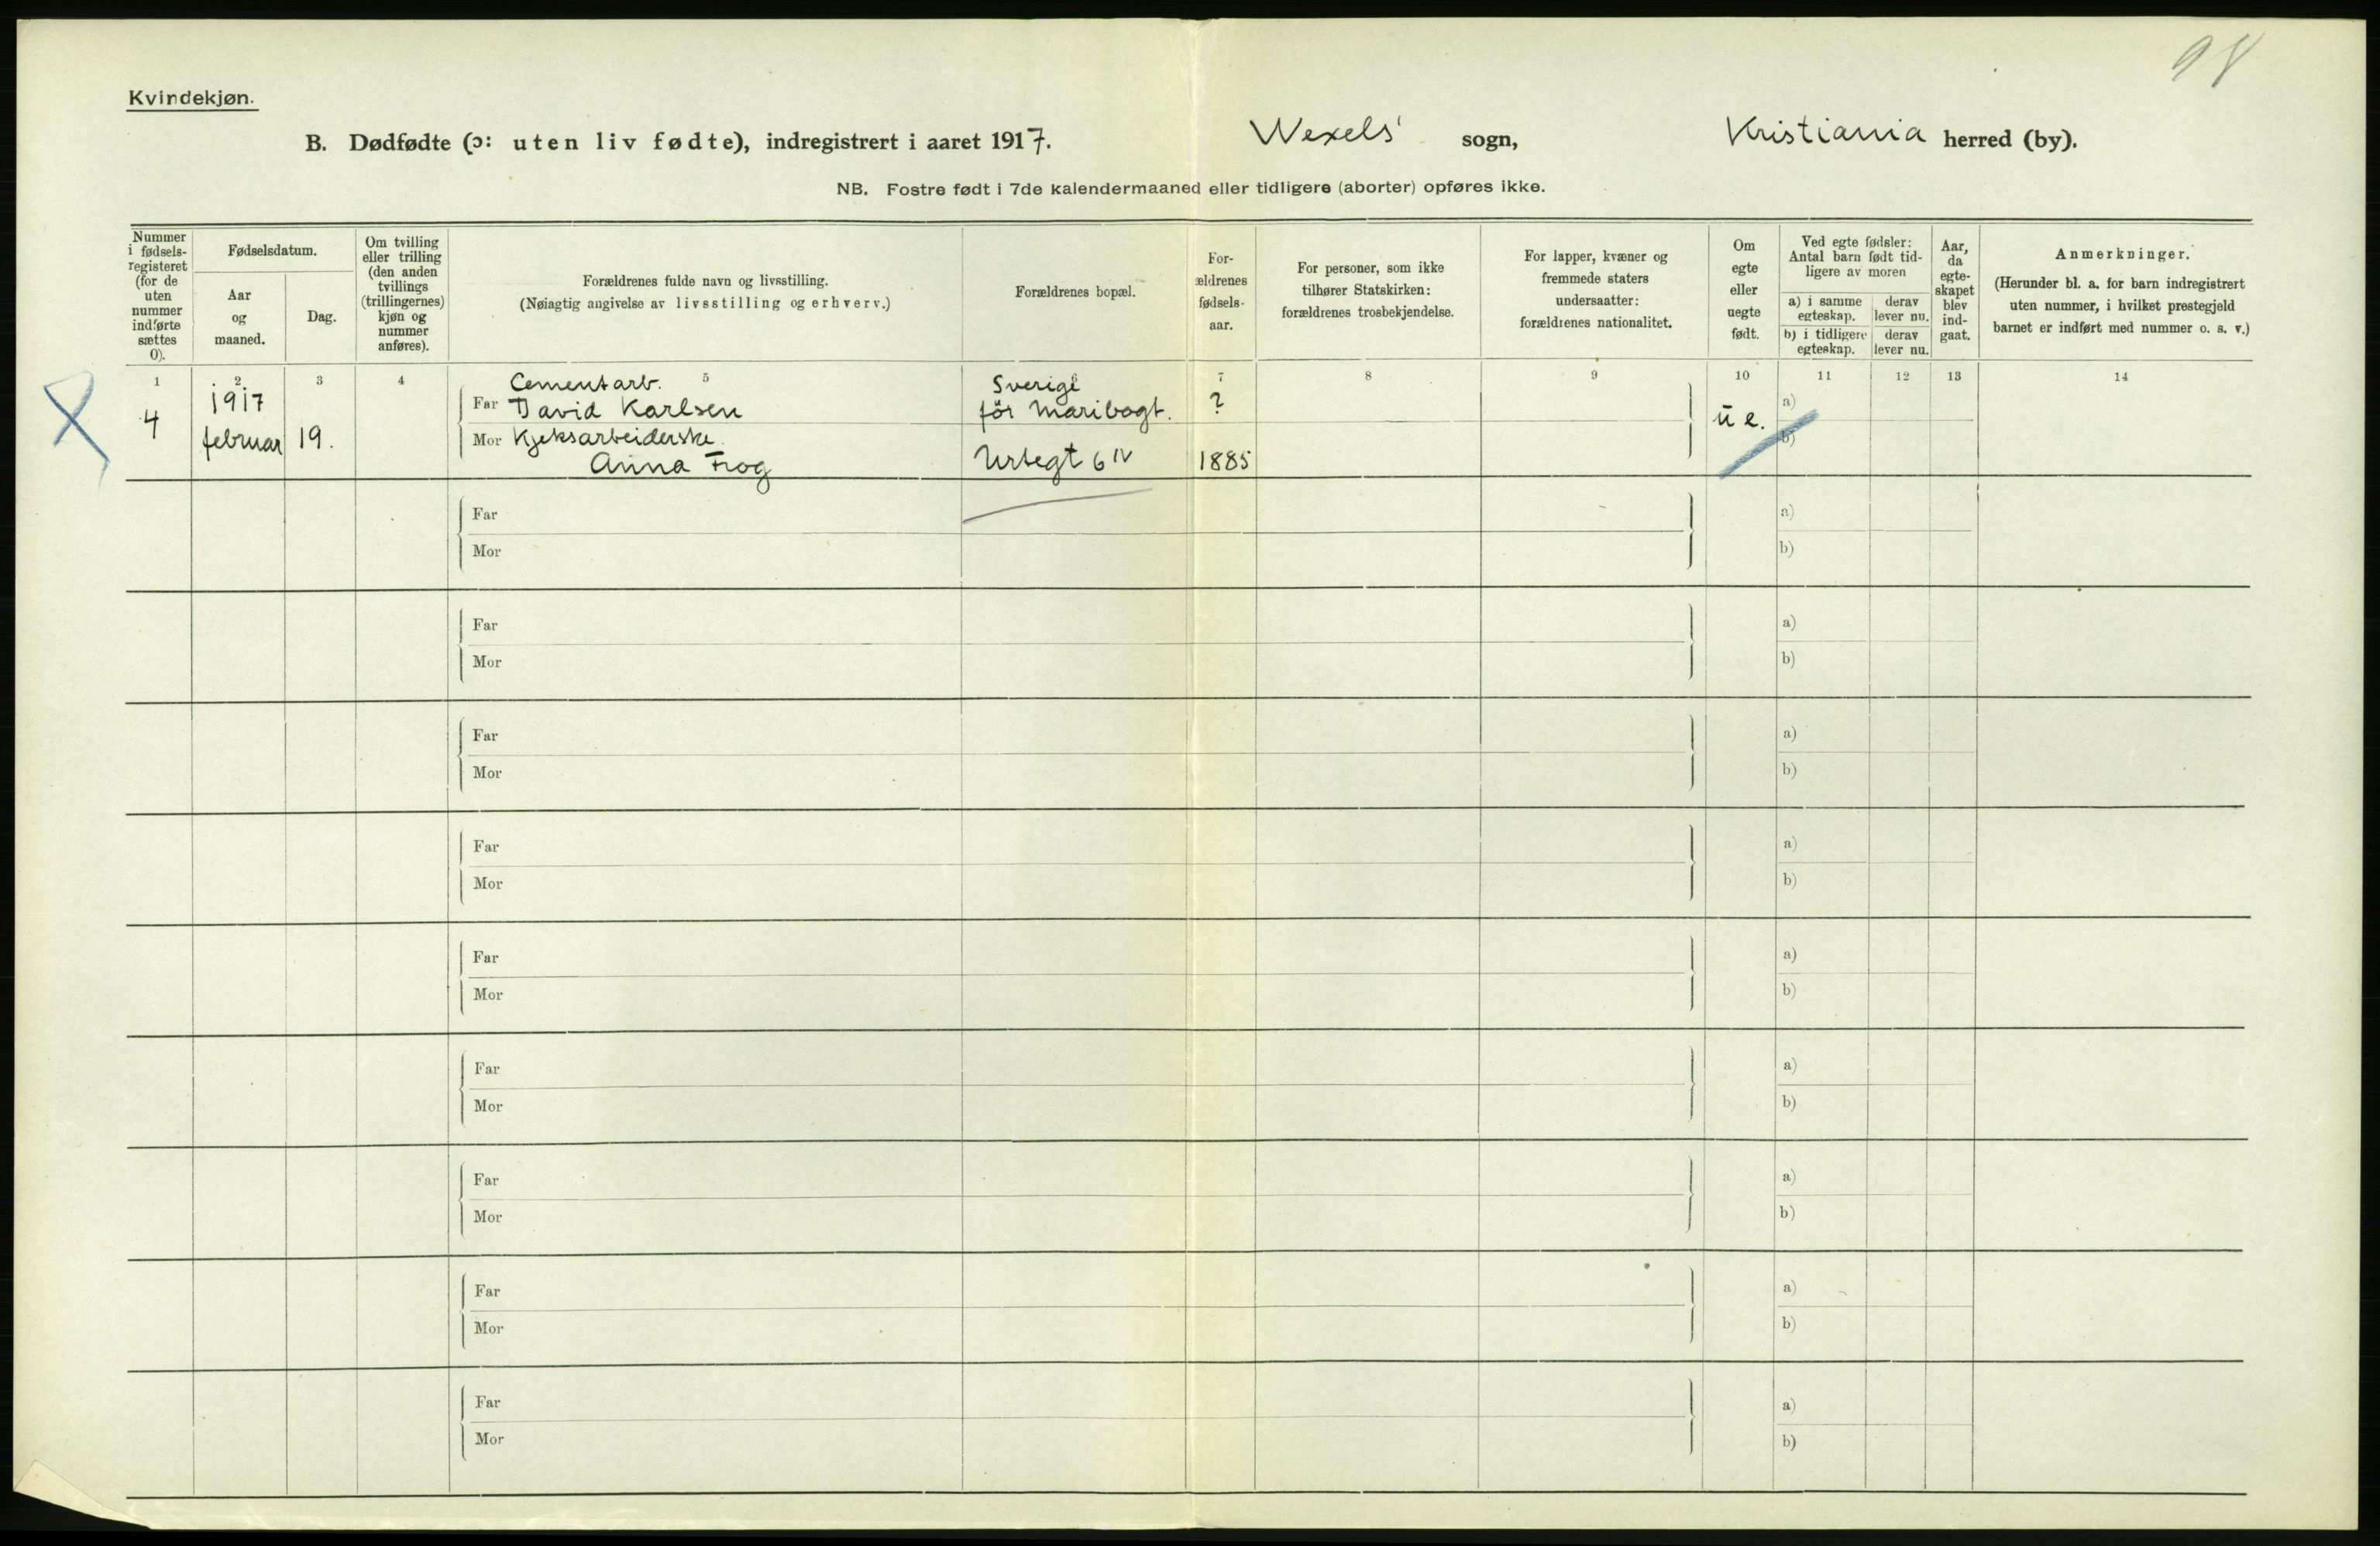 98
Kvindekjøn.
B. Dødfødte (ɔ: uten liv fødte), indregistrert i aaret 1917. Wexels' sogn, Kristiania herred (by).
NB. Fostre født i 7de kalendermaaned eller tidligere (aborter) opføres ikke.
Nummer
i fødsels-
registeret
(for de
uten
nummer
indførte
sættes
0).
Fødselsdatum.
Aar
og
maaned.
Dag.
Om tvilling
eller trilling
(den anden
tvillings
(trillingernes)
kjøn og
nummer
anføres).
Forældrenes fulde navn og livsstilling.
(Nøiagtig angivelse av livsstilling og erhverv.)
Forældrenes bopæl.
For-
ældrenes
fødsels-
aar.
For personer, som ikke
tilhører Statskirken:
forældrenes trosbekjendelse.
For lapper, kvæner og
fremmede staters
undersaatter:
forældrenes nationalitet.
Om
egte
eller
uegte
født.
Ved egte fødsler:
Antal barn født tid-
ligere av moren
a) i samme
egteskap.
derav
lever nu.
b) i tidligere
egteskap.
derav
lever nu.
Aar,
da
egte-
skapet
blev
ind-
gaat.
Anmerkninger.
(Herunder bl. a. for barn indregistrert
uten nummer, i hvilket prestegjeld
barnet er indført med nummer o. s. v.)
1 2 3 4 5 6 7 8 9 10 11 12 13 14
4
1917
februar 19.
Cementarb.
Far David Karlsen
Mor Kjeksarbeiderske.
Anna Frog
Sverige
før Maribogt.
Urtegt 6 IV
?
1885
u e.
a)
b)
Far a)
Mor b)
Far a)
Mor b)
Far a)
Mor b)
Far a)
Mor b)
Far a)
Mor b)
Far a)
Mor b)
Far a)
Mor b)
Far a)
Mor b)
Far a)
Mor b)